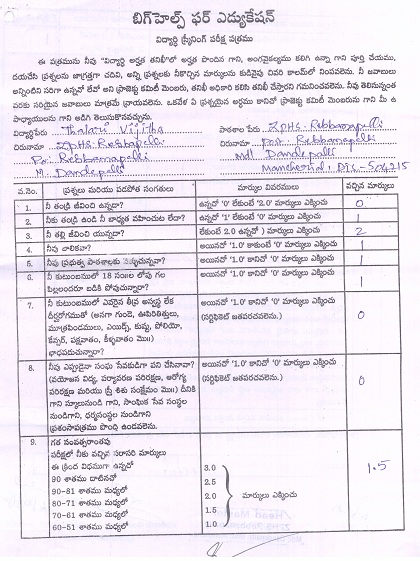 బిగ్‌హెల్ప్ ఫర్ ఎడ్యుకేషన్
విద్యార్థి స్క్రీనింగ్ పరీక్ష పత్రము
ఈ పత్రమును నీవు "విద్యార్థి అర్హత తనిఖీ"లో అర్హత పొందిన గాని, అంగవైకల్యము కలిగి ఉన్నా గాని పూర్తి చేయుము,
దయచేసి ప్రశ్నలను జాగ్రత్తగా చదివి, అన్ని ప్రశ్నలకు నీకొచ్చిన మార్కులను కుడివైపు చివరి కాలమ్‌లో నింపవలెను. నీ జవాబులు
అన్నింటిని సరిగా ఉన్నవో లేదో అని ప్రాజెక్టు కమిటీ మెంబరు, తనిఖీ అధికారి కలిసి తనిఖీ చేస్తారని గమనించవలెను. నీవు తెలిసినంత
వరకు సరియైన జవాబులు మాత్రమే వ్రాయవలెను. ఒకవేళ ఏ ప్రశ్నయైన అర్థము కానిచో ప్రాజెక్టు కమిటీ మెంబరును గాని మీ ఉ
పాధ్యాయులను గాని అడిగి తెలుసుకొనవచ్చును.
విద్యార్థిపేరు Thalari Vijitha పాఠశాల పేరు ZPHS-Rebbanapalli
చిరునామా ZPHS-Rebbapalli చిరునామా Po: Rebbanapalli
Po: Rebbanapalli Mdl Dandepalli
M. Dandepalli Mancherial, DTC-504215
వ.నెం. ప్రశ్నలు మరియు పదపోత సంగతులు మార్కుల వివరములు వచ్చిన మార్కులు
1. నీ తండ్రి జీవించి ఉన్నడా? ఉన్నచో '0' లేకుంటే '2.0' మార్కులు ఎక్కించు 0
2. నీకు తండ్రి ఉండి నీ బాధ్యత వహించుట లేదా? ఉన్నచో '1' లేకుంటే '0' మార్కులు ఎక్కించు 1
3. నీ తల్లి జీవించి యున్నదా? లేకుంటే 2.0 ఉన్నచో ) మార్కులు ఎక్కించు 2
4. నీవు బాలికవా? అయినచో '1.0' కాకుంటే '0' మార్కులు ఎక్కించు 1
5. నీవు ప్రభుత్వ పాఠశాలకు వెళ్ళుచున్నావా? అయినచో '1.0' కానిచో '0' మార్కులు ఎక్కించు 1
6. నీ కుటుంబములో 18 సం॥ల లోపు గల
పిల్లలందరూ బడికి పోవుచున్నారా? అయినచో '1.0' కానిచో '0' మార్కులు ఎక్కించు 1
7. నీ కుటుంబములో ఎవరైన తీవ్ర అస్వస్థ లేక
దీర్ఘరోగముతో (అనగా గుండె, ఊపిరితిత్తులు,
మూత్రపిండములు, ఎయిడ్స్, కుష్ఠు, పోలియో,
కేన్సర్, పక్షవాతం, కీళ్ళవాతం మొ॥)
బాధపడుచున్నారా? అయినచో '1.0' కానిచో '0' మార్కులు ఎక్కించు
(సర్టిఫికెట్ జతపరచవలెను.) 0
8. నీవు ఎప్పుడైనా సంఘ సేవకుడిగా పని చేసినావా?
(వయోజన విద్య, పర్యావరణ పరిరక్షణ, ఆరోగ్య
పరిరక్షణ మరియు స్త్రీ శిశు సంక్షేమం మొ॥) దీనికి
గాని స్కూలునుండి గాని, సాంఘిక సేవ సంస్థల
నుండిగాని, ధర్మసంస్థల నుండిగాని
ప్రశంసాపత్రము పొంది ఉండవలెను. అయినచో '1.0' కానిచో '0' మార్కులు ఎక్కించు
(సర్టిఫికెట్ జతపరచవలెను.) 0
9. గత సంవత్సరాంతపు
పరీక్షలో నీకు వచ్చిన సరాసరి మార్కులు
ఈ క్రింద విధముగా ఉన్నచో
90 శాతము దాటినచో 3.0
90-81 శాతము మధ్యలో 2.5
80-71 శాతము మధ్యలో 2.0 మార్కులు ఎక్కించు
70-61 శాతము మధ్యలో 1.5
60-51 శాతము మధ్యలో 1.0
1.5